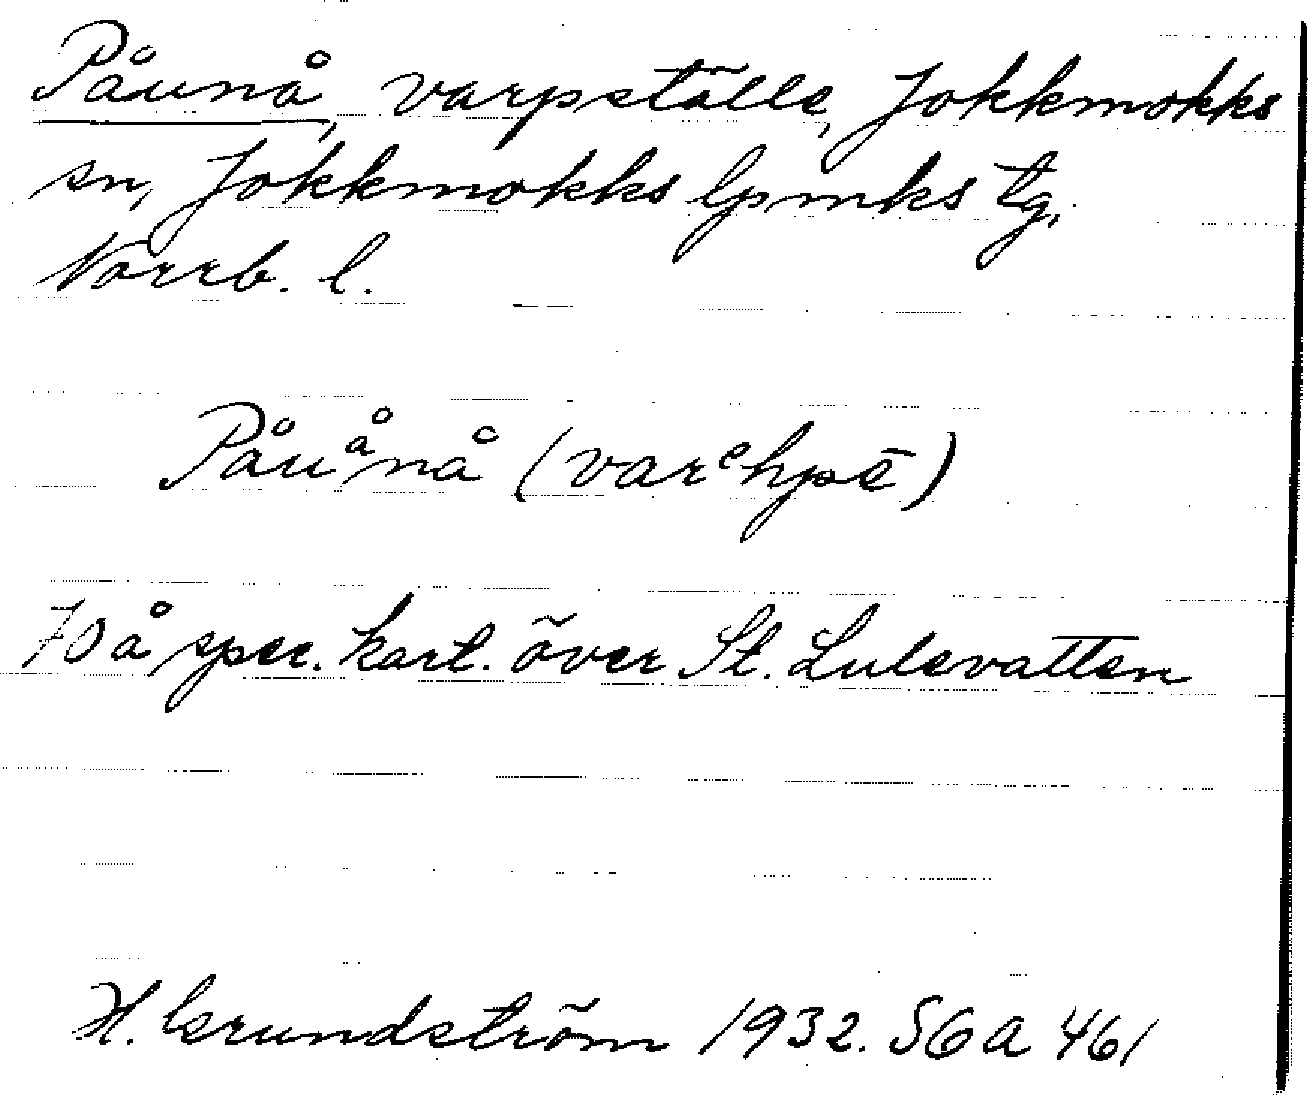 Påunå, varpställe, Jokkmokks
sn, Jokkmokks lpmks tg,
Norrb. l.
Påuånå (varehpē)
70 å spec. kart. över St. Lulevatten
H. Grundström 1932. SGA 461